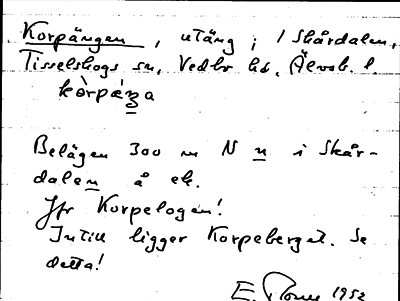 Korpängen, utäng i Skårdalen,
Tisselskogs sn, Vedbo hd, Älvsb. l.
kòrpǽŋa
Belägen 300 m N n i Skår-
dalen å ek.
Jfr Korpelogen!
Intill ligger Korpeberget. Se
detta!
E. 1952